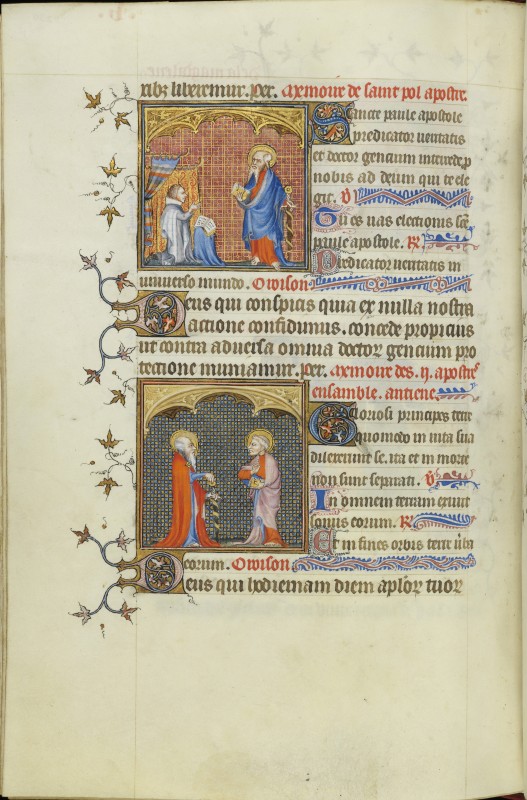 ribz liberemur. per. A memoire de saint pol apostre.
Sancte paule apostole
predicator veritatis
et doctor gencium intercede p
nobis ad deum qui te ele
git. V
Tu es vas electionis sce
paule apostole. R
Predicator veritatis in
universo mundo. Orvison
Deus qui conspicis quia ex nulla nostra
actione confidimus. concede propicius
ut contra adversa omnia doctor gencium pro
tectione muniamur. per. A memoire des .ij. apostres
ensamble. antiene
Gloriosi principes terre
quomodo in vita sua
dilexerunt se. ita et in morte
non sunt separati. V
In omnem terram exivit
sonus eorum. R
Et in fines orbis terre verba
eorum. Orvison
Deus qui hodiernam diem aplor tuor